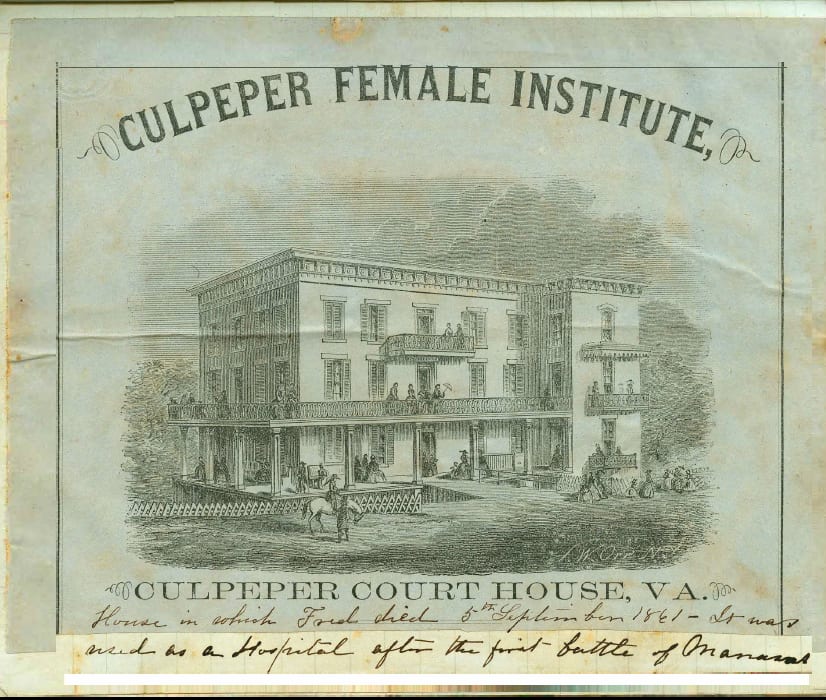 CULPEPER FEMALE INSTITUTE,
CULPEPER COURT HOUSE, VA.
House in which Fred died 5th September 1861 - It was
used as a Hospital after the first battle of Manassas